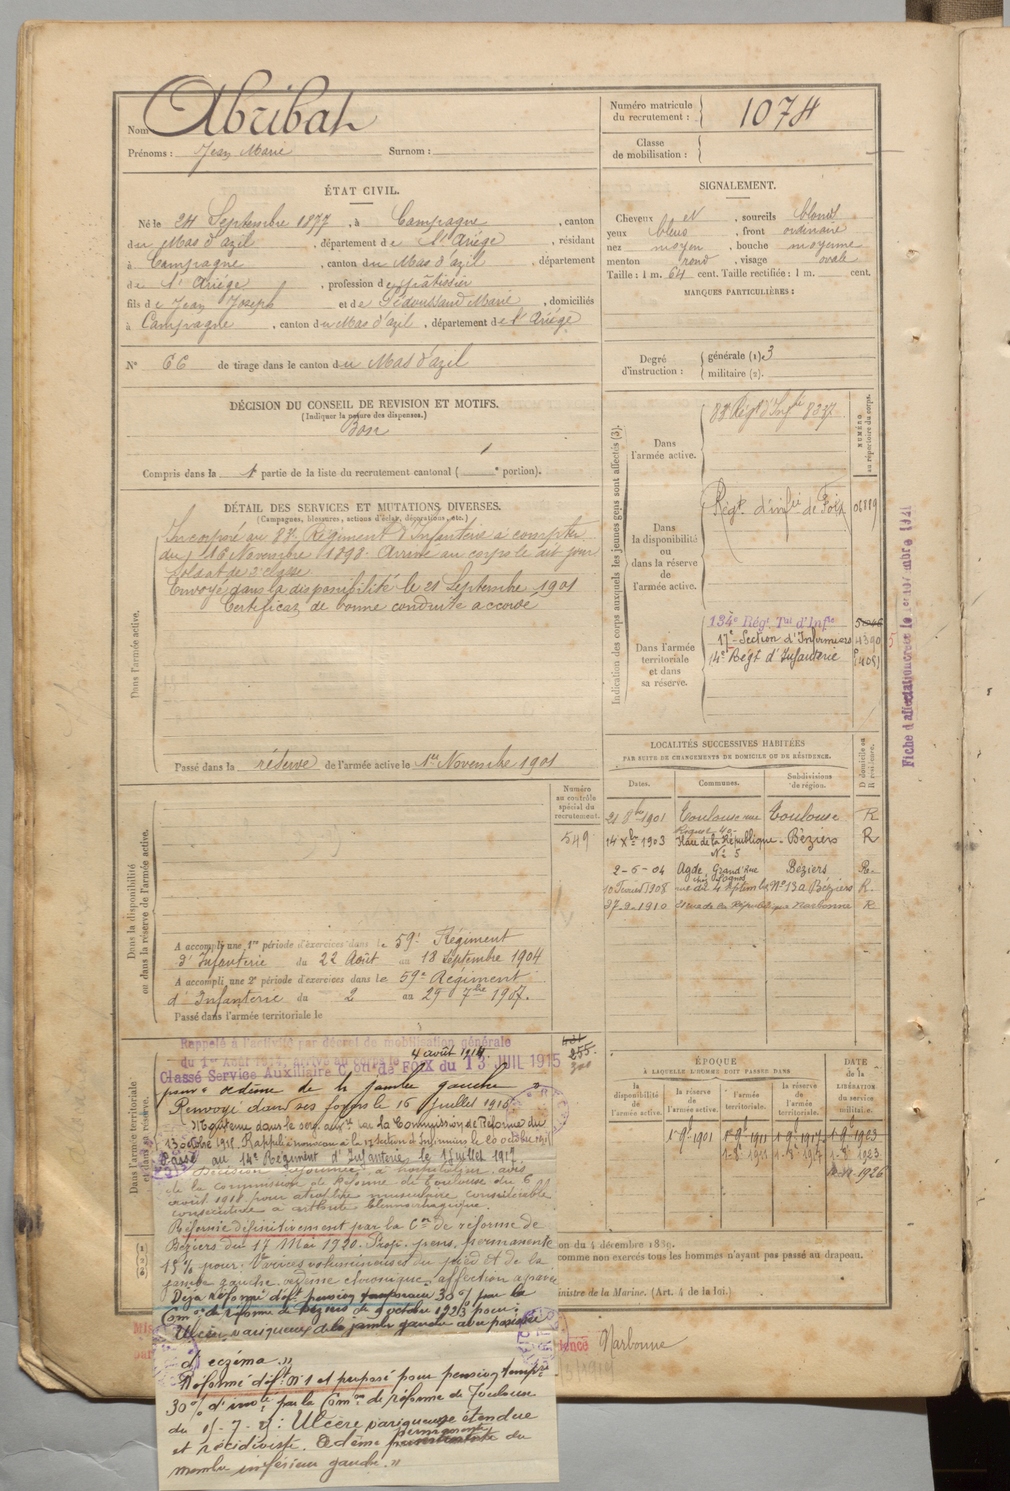 Nom Abribat
Prénoms : Jean Marie Surnom :
Numéro matricule du recrutement : 1074
Classe de mobilisation :
ÉTAT CIVIL.
Né le 24 Septembre 1877, à Campagne, canton
du Mas d'azil, département de l'Ariége, résidant
à Campagne, canton du Mas d'azil département
de l'Ariége, profession de pâtissier
fils de Jean Joseph et de Sédoussaud Marie, domiciliés
à Campagne, canton du Mas d'azil, département de l'Ariége
N° 66 de tirage dans le canton du Mas d'azil
SIGNALEMENT.
Cheveux et, sourcils blond
yeux bleus, front ordinaire
nez moyen, bouche moyenne
menton rond, visage ovale
Taille : 1 m. 64 cent. Taille rectifiée : 1 m. cent.
MARQUES PARTICULIÈRES :
Degré d'instruction : générale (1) 3
militaire (2).
DÉCISION DU CONSEIL DE REVISION ET MOTIFS.
(Indiquer la nature des dispenses.)
Bon
Compris dans la 1e partie de la liste du recrutement cantonal ( e portion).
DÉTAIL DES SERVICES ET MUTATIONS DIVERSES.
(Campagnes, blessures, actions d'éclat, décorations, etc.)
Dans l'armée active.
Incorporé au 83e Régiment d'Infanterie à compter
du 16 Novembre 1898. Arrivé au corps le dit jour
Soldat de 2e classe
Envoyé dans la disponibilité le 21 Septembre 1901
Certificat de bonne conduite accordé
Passé dans la réserve de l'armée active le 1er Novembre 1901
Indication des corps auxquels les jeunes gens sont affectés (3).
NUMÉRO au répertoire du corps.
Dans l'armée active.
83e Régt d'Infie 8337
Dans la disponibilité ou dans la réserve de l'armée active.
Régt. d'infie de Foix 06889
Dans l'armée territoriale et dans sa réserve.
134e Régt Tal d'Infie
17e Section d'Infirmiers 4390
14e Régt d'Infanterie
Fiche d'affectation
LOCALITÉS SUCCESSIVES HABITÉES
PAR SUITE DE CHANGEMENTS DE DOMICILE OU DE RÉSIDENCE.
Dates. Communes. Subdivisions de région. D domicile ou R résidence.
21 8bre 1901 Toulouse rue Toulouse R
14 Xbre 1903 Place de la République N° 5 Béziers R
2-6-04 Agde, Grand'Rue Béziers R.
10 Février 1908 rue du 4 Septembre N° 13 à Béziers R.
27-9-1910 Narbonne R
Dans la disponibilité ou dans la réserve de l'armée active.
Numéro au contrôle spécial du recrutement.
549
A accompli une 1re période d'exercices dans le 59e Régiment
d'Infanterie du 22 Août au 18 Septembre 1904
A accompli une 2e période d'exercices dans le 59e Régiment
d'Infanterie du 2 au 29 7bre 1907.
Passé dans l'armée territoriale le
Dans l'armée territoriale et dans sa réserve.
255
Rappelé à l'activité par décret de mobilisation générale
du 1er Août 1914. Arrivé au corps le 4 août 1914.
Classé Service Auxiliaire Con de FOIX du 13 JUIL 1915
pour : œdème de la jambe gauche »
Renvoyé dans ses foyers le 16 Juillet 1915
Maintenu dans le serv. auxre par la Commission de Réforme du
13 octobre 1915. Rappelé à nouveau à la 17 Section d'Infirmiers le 20 octobre 1915
Passé au 14e Régiment d'Infanterie le 1 Juillet 1917.
Décision ajournée à hospitaliser, avis
de la commission de Réforme de Toulouse du 6
août 1918 pour atrophie musculaire considérable
consécutive à arthrite blennorhagique.
Réformé définitivement par la Con de réforme de
Béziers du 17 Mai 1920. Prop. pens. permanente
15 % pour : Varices volumineuses du pied et de la
jambe gauche œdème chronique
Déjà réformé déft pension temporaire 30 % par la
Comon de réforme de Béziers du 9 octobre 1923 pour :
Ulcère variqueux de la jambe gauche avec poussées
d'eczéma. »
Réformé déft N° 1 et proposé pour pension tempre
30 % d'invté par la Comon de réforme de Toulouse
du : Ulcère variqueux étendue
et récidivante. Œdème permanent du
membre inférieur gauche. »
ÉPOQUE
À LAQUELLE L'HOMME DOIT PASSER DANS
la disponibilité de l'armée active. la réserve de l'armée active. l'armée territoriale. la réserve de l'armée territoriale. DATE de la LIBÉRATION du service militaire.
1-9-1901 1-9-1911 1-9-1917 1-9-1923
1-8-1911 1-8-1917 1-8-1923
1926
on du 4 décembre 1839.
comme non exercés tous les hommes n'ayant pas passé au drapeau.
inistre de la Marine. (Art. 4 de la loi.)
Narbonne